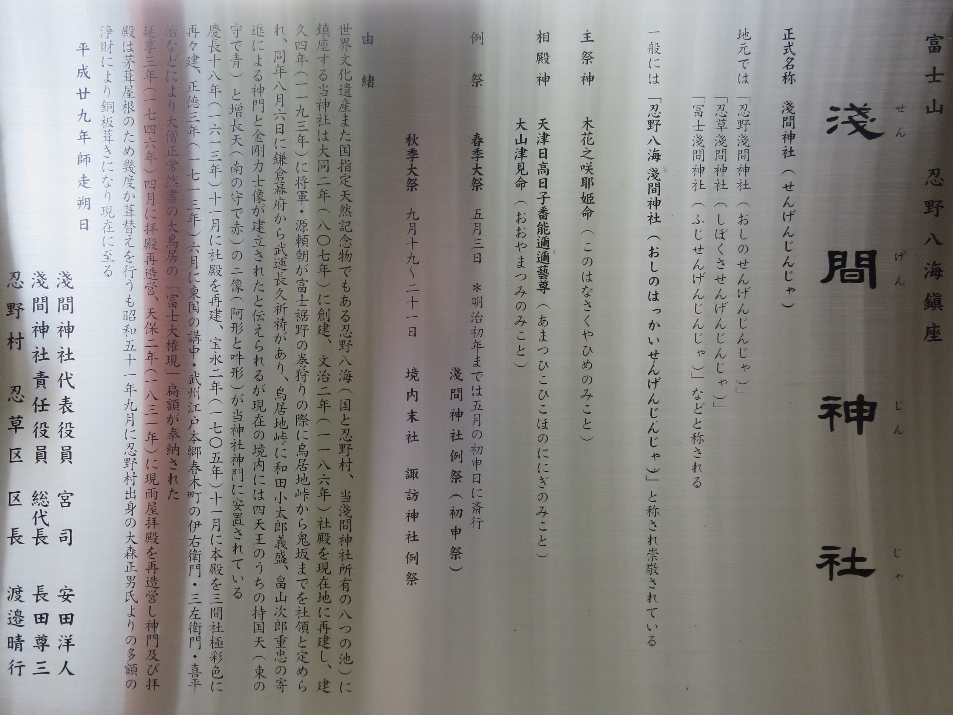 富士山 忍野八海鎮座
淺間神社
せん げん じん じゃ
正式名称 淺間神社(せんげんじんじゃ)
地元では「忍野淺間神社(おしのせんげんじんじゃ)」
「忍草淺間神社(しぼくさせんげんじんじゃ)」
「冨士淺間神社(ふじせんげんじんじゃ)」などと称される
一般には「忍野八海 淺間神社(おしのはっかいせんげんじんじゃ)」と称され崇敬されている
主祭神 木花之咲耶姫命(このはなさくやひめのみこと)
相殿神 天津日高日子番能邇邇藝尊(あまつひこひこほのににぎのみこと)
大山津見命(おおやまつみのみこと)
例祭 春季大祭 五月三日 *明治初年までは五月の初申日に斎行
淺間神社例祭(初申祭)
秋季大祭 九月十九~二十一日 境内末社 諏訪神社例祭
由緒
世界文化遺産また国指定天然記念物でもある忍野八海(国と忍野村、当淺間神社所有の八つの池)に
鎮座する当神社は大同二年(八〇七年)に創建、文治二年(一一八六年)社殿を現在地に再建し、建
久四年(一一九三年)に将軍・源頼朝が富士裾野の巻狩りの際に鳥居地峠から鬼坂までを社領と定めら
れ、同年八月六日に鎌倉幕府から武運長久祈祷があり、鳥居地峠に和田小太郎義盛、畠山次郎重忠の寄
進による神門と金剛力士像が建立されたと伝えられるが現在の境内には四天王のうちの持国天(東の
守で青)と増長天(南の守で赤)の二像(阿形と吽形)が当神社神門に安置されている
慶長十八年(一六一三年)十一月に社殿を再建、宝永二年(一七〇五年)十一月に本殿を三間社極彩色に
再々建、正徳三年(一七一三年)六月に東国の講中・武州江戸本郷春木町の伊右衛門・三左衛門・喜平
治などにより大僧正常然書の大鳥居の「富士大権現」扁額が奉納された
延享三年(一七四六年)四月に拝殿再造営、天保二年(一八三一年)に現雨屋拝殿を再造営し神門及び拝
殿は茅葺屋根のため幾度か葺替えを行うも昭和五十一年九月に忍野村出身の大森正男氏よりの多額の
浄財により銅板葺きになり現在に至る
平成廿九年師走朔日
淺間神社代表役員 宮司 安田洋人
淺間神社責任役員 総代長 長田尊三
忍野村 忍草区 区長 渡邉晴行